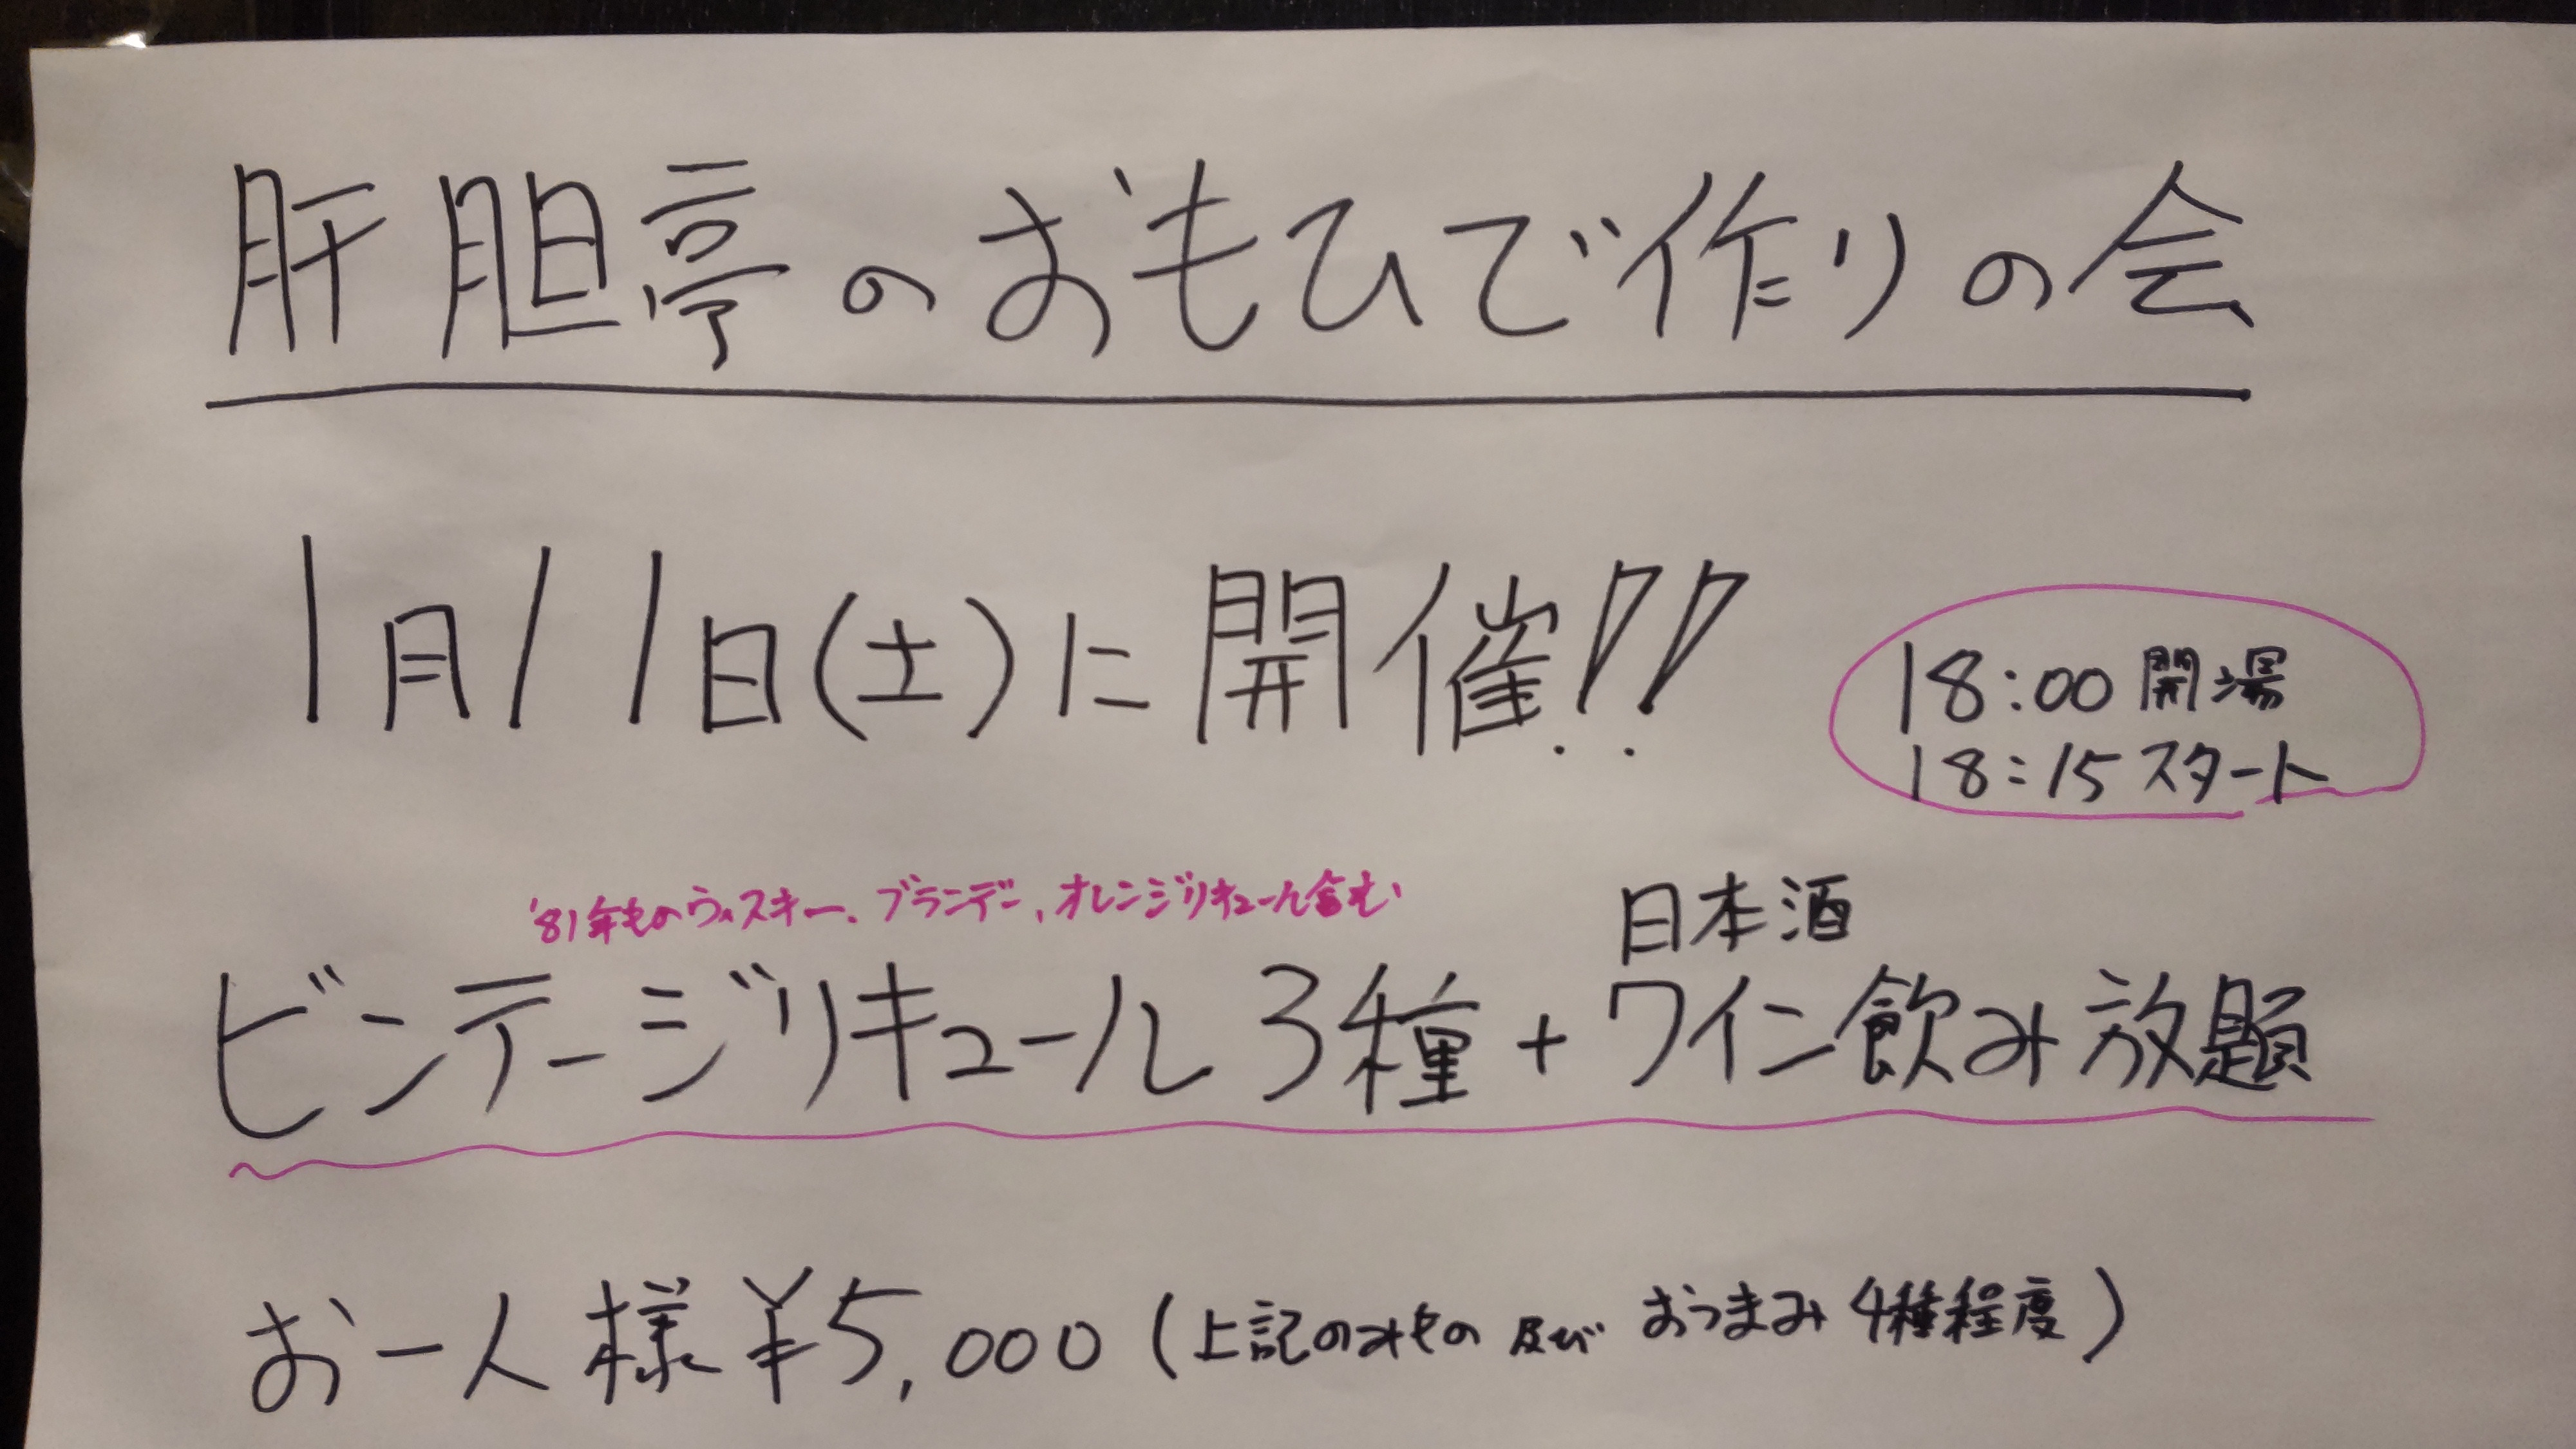 肝胆亭のおもひで作りの会
1月11日(土)に開催!!
18:00 開場
18:15 スタート
'81年ものウィスキー、ブランデー、オレンジリキュール含む
日本酒
ビンテージリキュール3種+ワイン飲み放題
お一人様¥5,000(上記のみもの及びおつまみ4種程度)